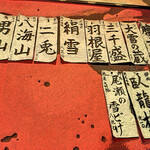 大雪の蔵
三千盛
羽根屋
絹雪
二兎
八海山
男山
臥龍
尾瀬の雪どけ